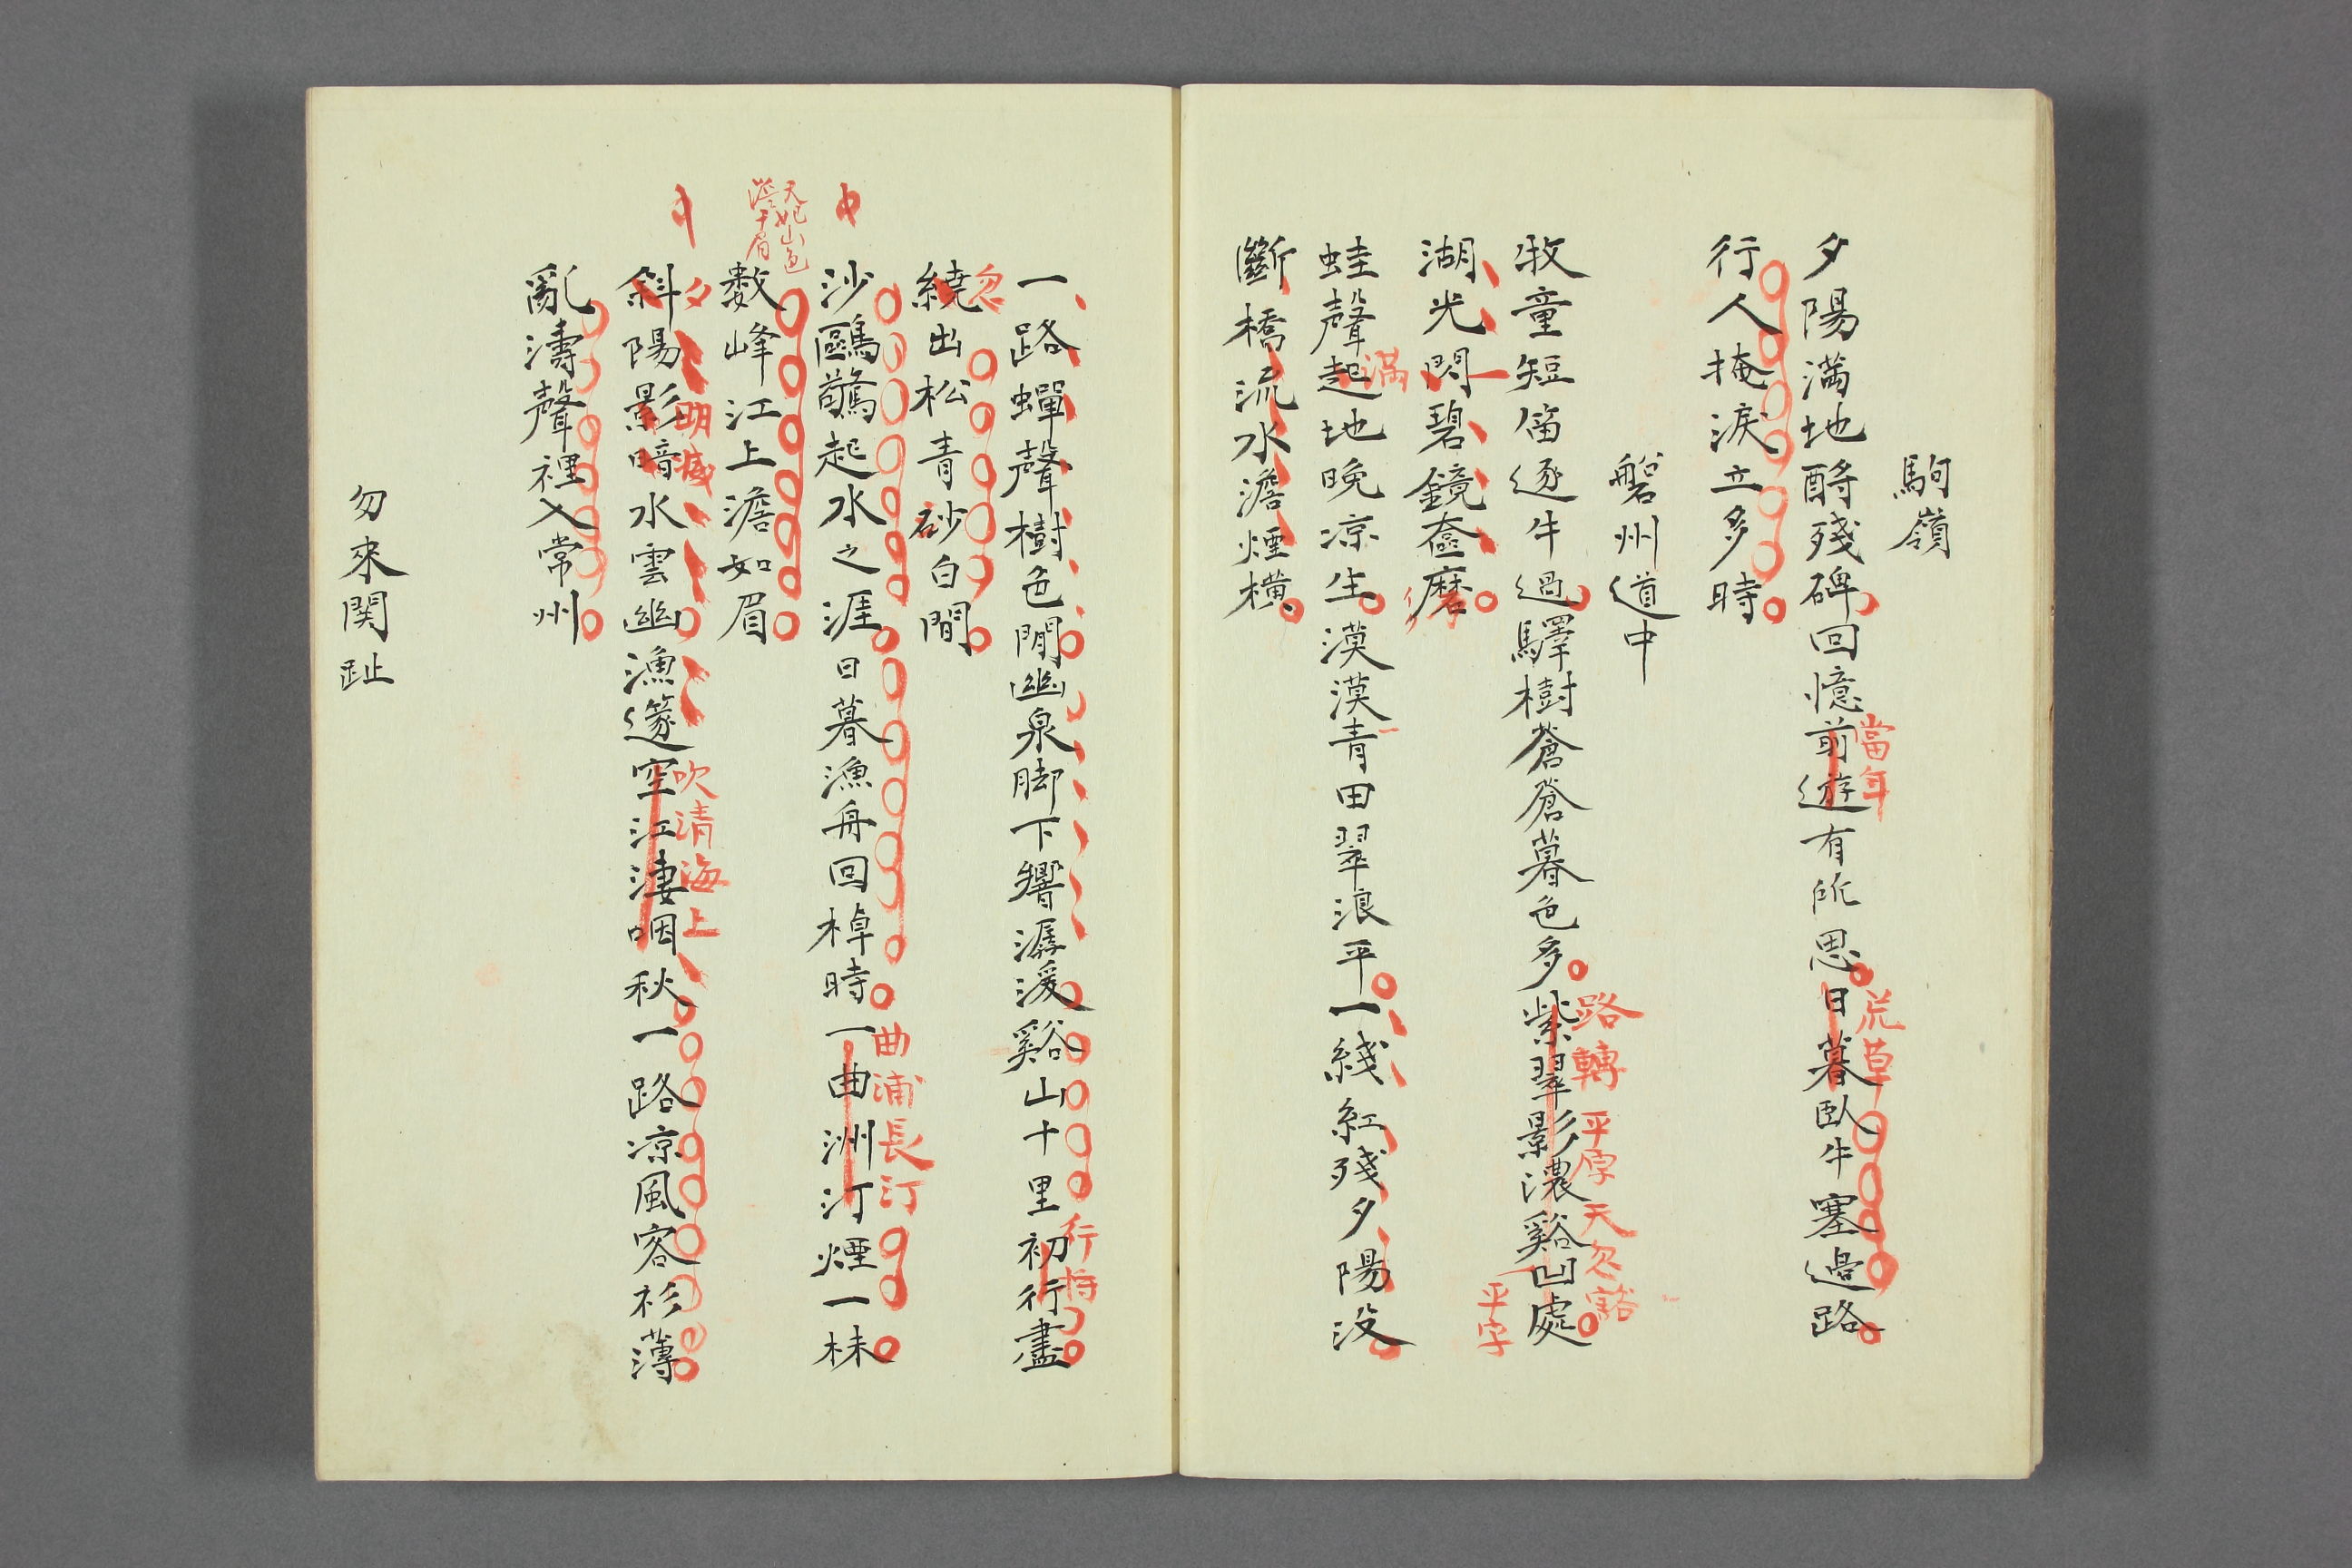 駒嶺
夕陽満地酹殘碑回憶前遊有所思日暮臥牛塞邊路
當年
荒草
行人掩淚立多時
磐州道中
牧童短笛逐牛過驛樹蒼蒼暮色多紫翠影濃谿凹處
路轉平原天忽豁
平字
湖光閃碧鏡奩磨
蛙聲起地晩凉生漠漠青田翠浪平一綫紅殘夕陽没
満
斷橋流水澹煙橫
一路蟬聲樹色閒幽泉脚下響潺湲谿山十里初行盡
行将
繞出松青砂白間
忽
沙鷗驚起水之涯日暮漁舟回棹時一曲洲汀煙一抹
曲浦長汀
數峰江上澹如眉
天妃山色
澹于眉
斜陽影暗水雲幽漁篴空江淒咽秋一路凉風客衫薄
夕
明滅
吹清海上
亂濤聲裡入常州
勿來関趾